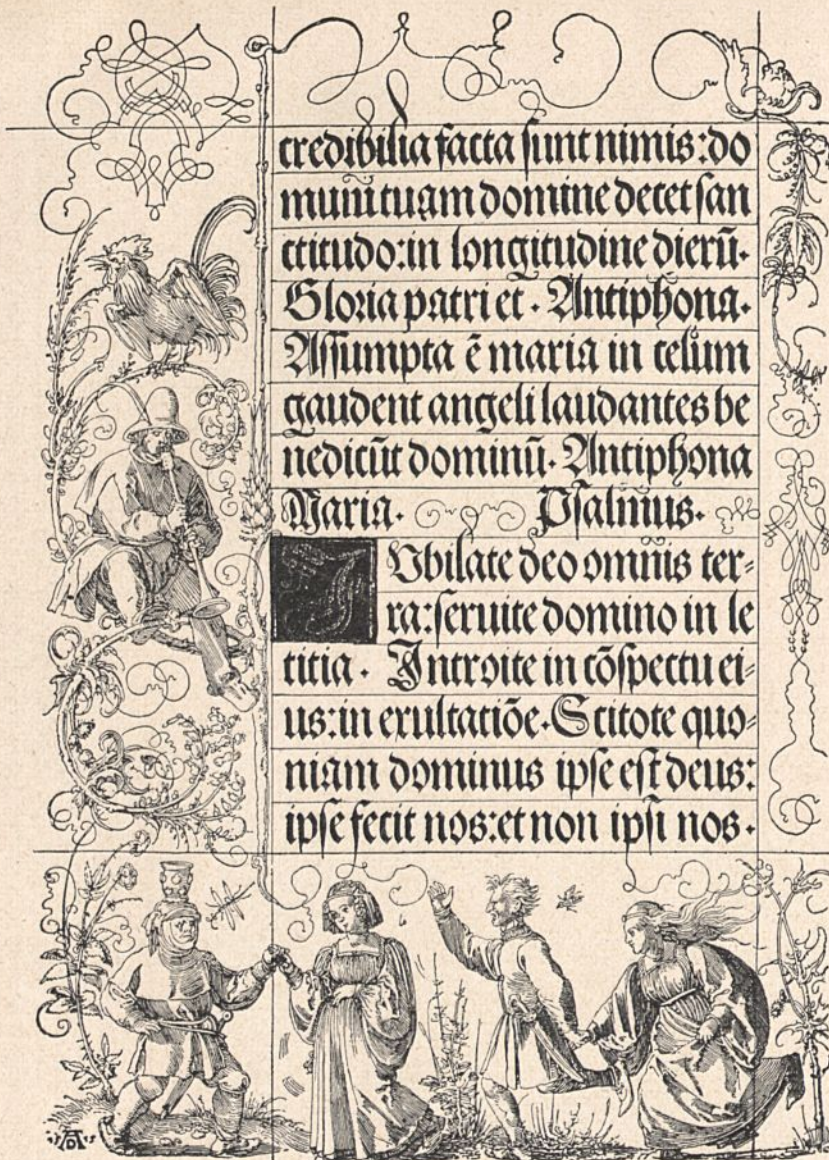 credibilia facta sunt nimis: do
mum̄ tuam domine decet san
ctitudo: in longitudine dierū.
Gloria patri et. Antiphona.
Assumpta ē maria in celum
gaudent angeli laudantes be
nedicūt dominū. Antiphona
Maria. Psalmus.
IVbilate deo omnis ter-
ra: seruite domino in le
titia. Introite in cōspectu ei-
us: in exultatiōe. Scitote quo-
niam dominus ipse est deus:
ipse fecit nos: et non ipsi nos.